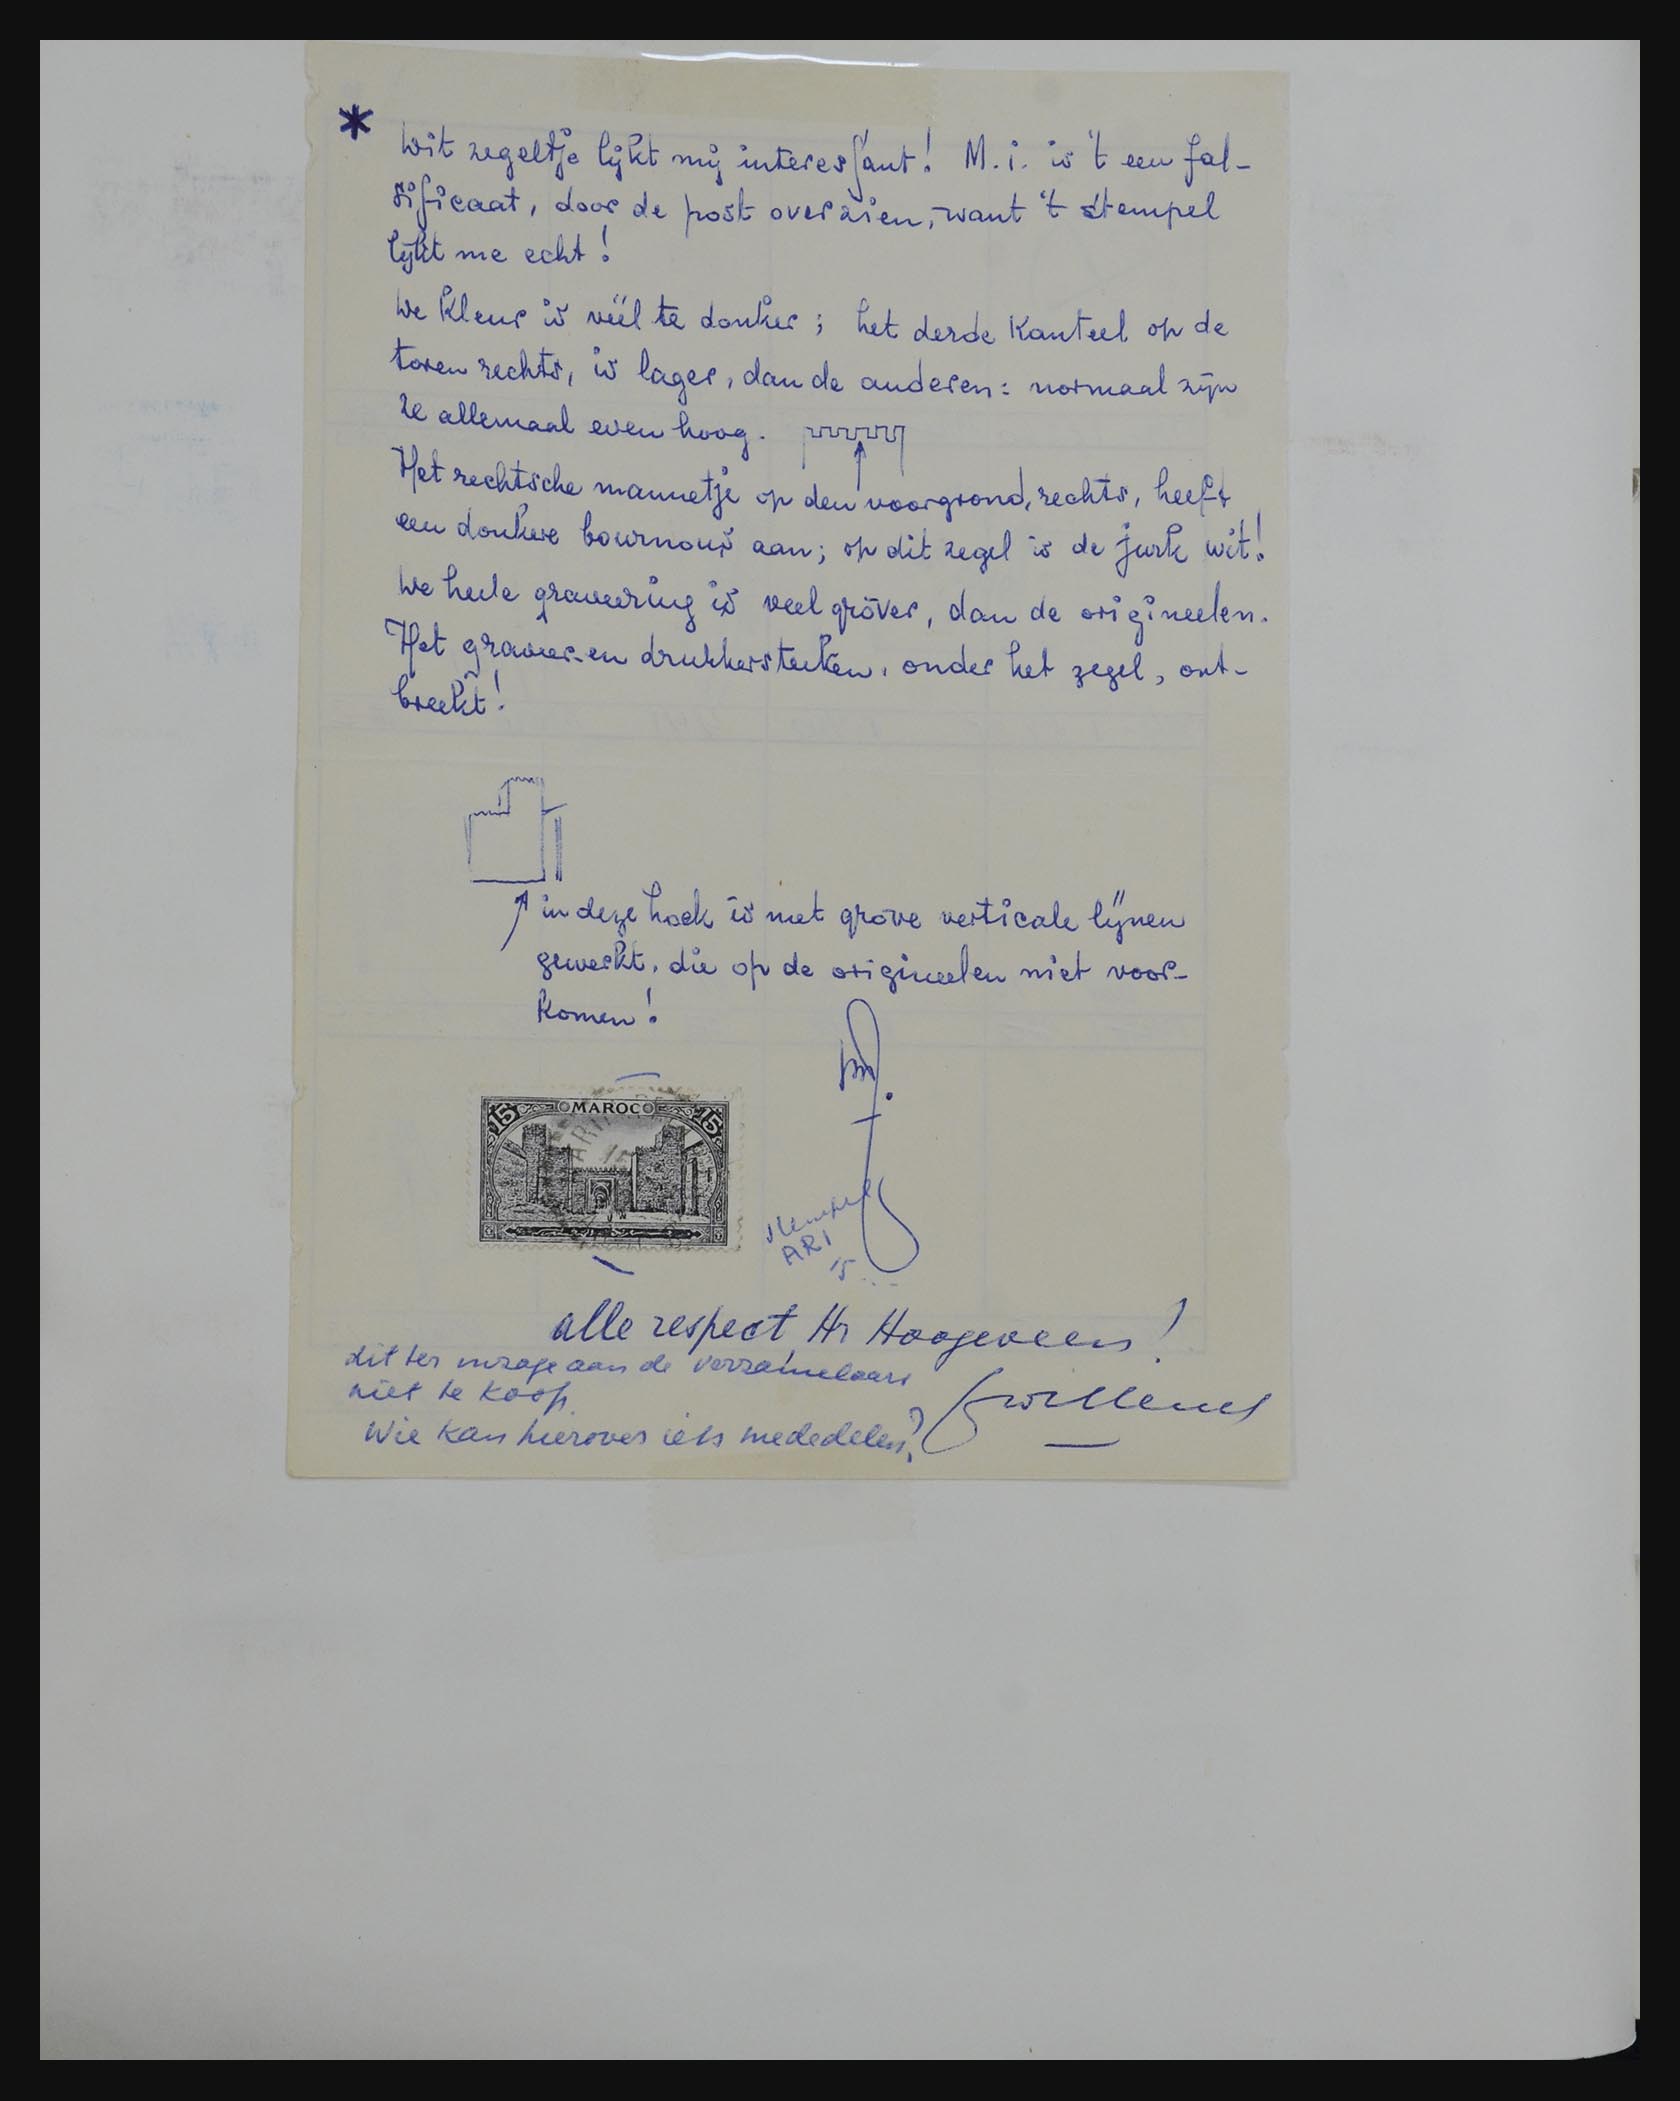 *
Dit zegeltje lijkt mij interessant! M.i. is 't een fal-
sificaat, door de post overzien, want 't stempel
lijkt me echt!
De kleur is véél te donker; het derde kanteel op de
toren rechts, is lager, dan de anderen: normaal zijn
ze allemaal even hoog.
Het rechtsche mannetje op den voorgrond, rechts, heeft
een donkere bournous aan; op dit zegel is de jurk wit!
De heele graveering is veel gróver, dan de origineelen.
Het graveer-en drukkersteeken, onder het zegel, ont-
breekt!
in deze hoek is met grove verticale lijnen
gewerkt, die op de origineelen niet voor-
komen!
15 MAROC 15
ARI
15
stempel
ARI
15...
alle respect, Hr Hoogeveen!
dit ter inzage aan de verzamelaars
niet te koop.
Wie kan hierover iets mededelen?
Willems